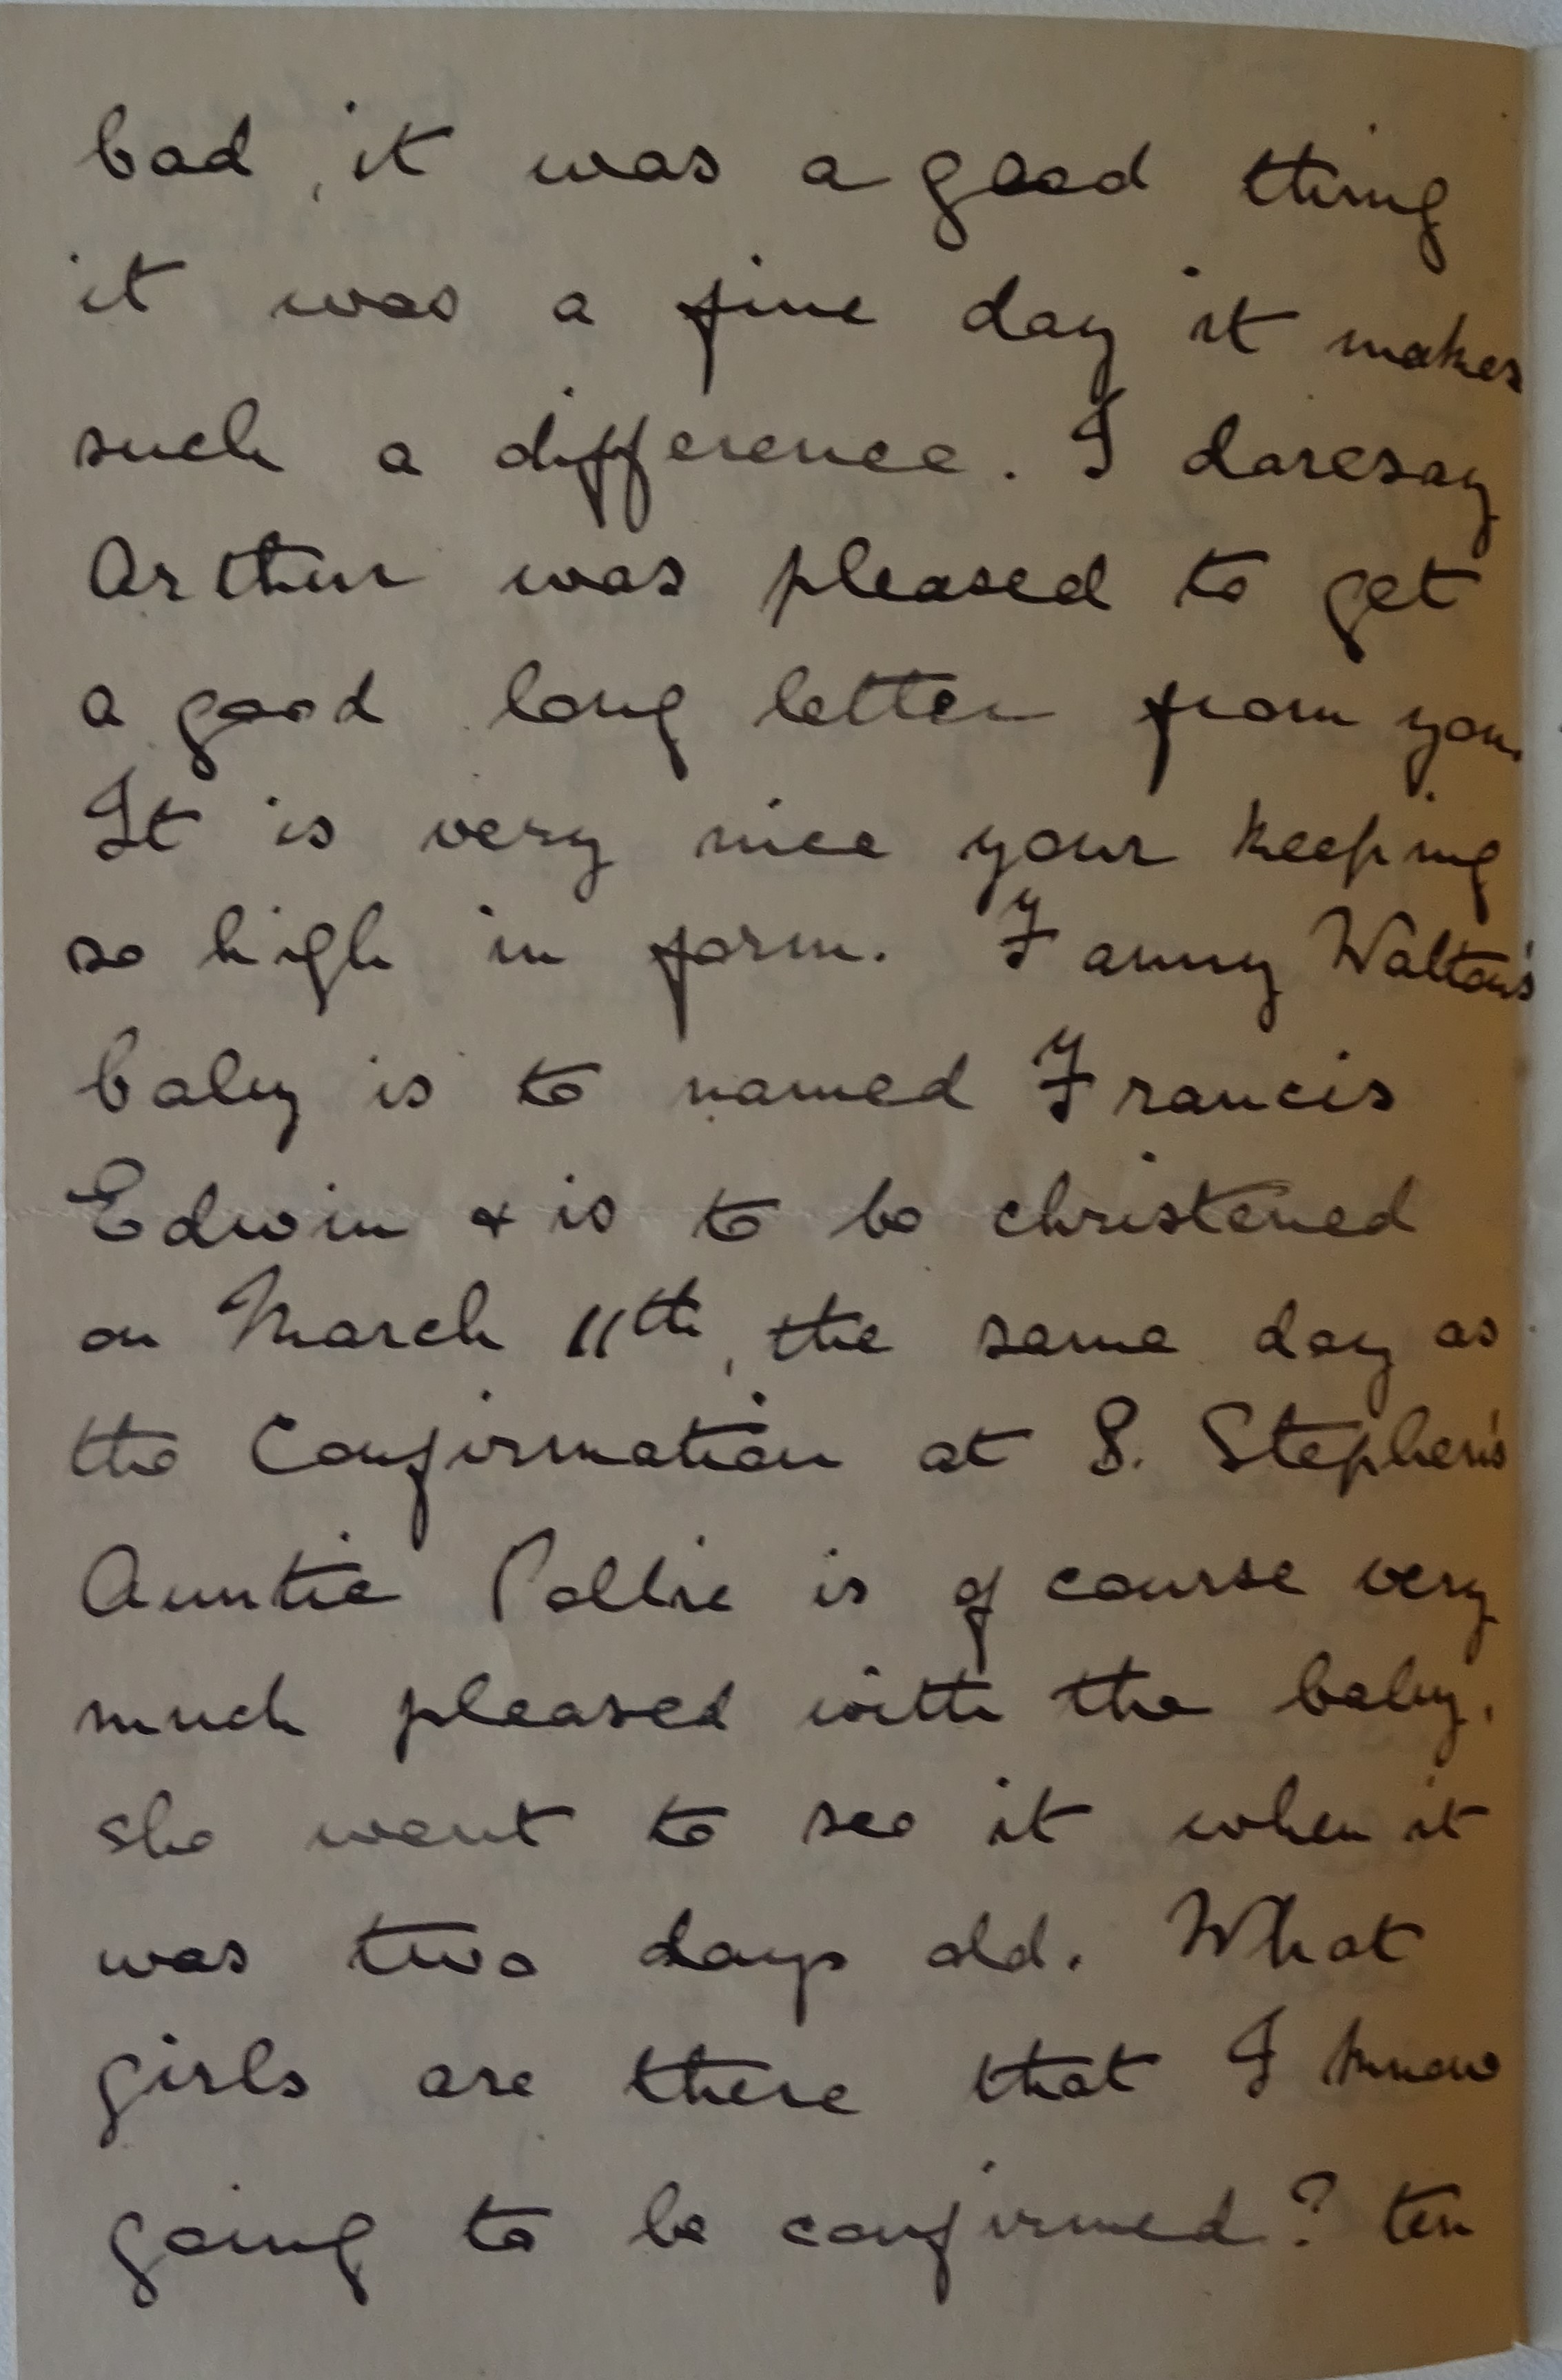 bad, it was a good thing
it was a fine day it makes
such a difference. I daresay
Arthur was pleased to get
a good long letter from you.
It is very nice your keeping
so high in form. Fanny Walton's
baby is to named Francis
Edwin & is to be christened
on March 11th, the same day as
the Confirmation at S. Stephen's
Auntie Pollie is of course very
much pleased with the baby,
she went to see it when it
was two days old. What
girls are there that I know
going to be confirmed? ten